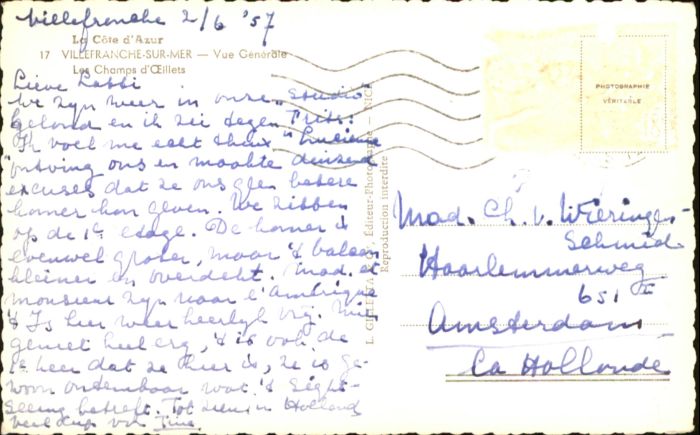 Villefranche 2/6 '57
La Côte d'Azur
17 VILLEFRANCHE-SUR-MER — Vue Générale
Les Champs d'Œillets
Lieve Lobbi
We zyn weer in onze "studio"
beland en ik zei tegen Frits:
Ik voel me echt thuis. "Lucienne"
ontving ons en maakte duizend
excuses dat ze ons geen betere
kamer kon geven. We zitten
op de 1e etage. De kamer is
evenwel groter, maar 't balcon
kleiner en overdekt. Mad. et
monsieur zyn naar l'Amérique
't Is hier weer heerlyk
geniet heel erg, 't is ook de
1e keer dat ze hier is, ze is ge-
woon onkenbaar wat 't Sight-
Seeing betreft. Tot ziens in Holland
veel van Tine
L. Éditeur-Photographe — NICE
Reproduction interdite
PHOTOGRAPHIE
VÉRITABLE
Mad. Ch. v. Wieringen-
Schmid
Haarlemmerweg
651 II
Amsterdam
La Hollande